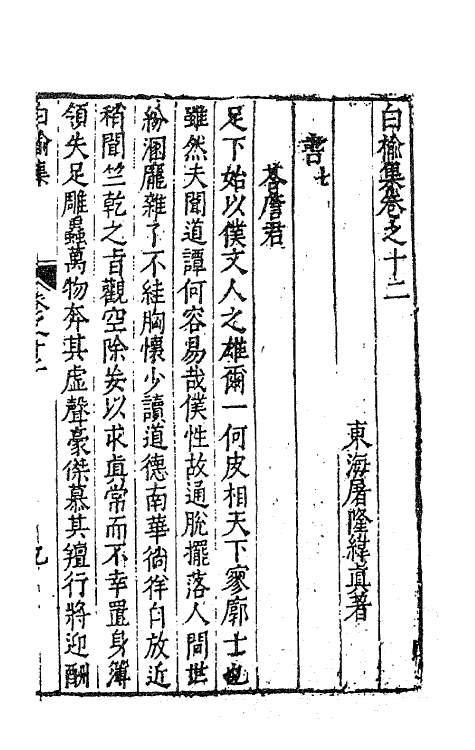 白榆集卷之十二
東海屠隆緯眞著
書七
荅詹君
足下始以僕文人之雄爾一何皮相天下寥廓士也
雖然夫聞道譚何容易哉僕性故通脫擺落人間世
紛溷龎雜了不絓胸懷少讀道德南華徜徉自放近
稍聞竺乾之旨觀空除妄以求眞常而不幸置身簿
領失足雕蟲萬物奔其虛聲豪傑慕其羶行將迎酬
白榆集
卷之十二